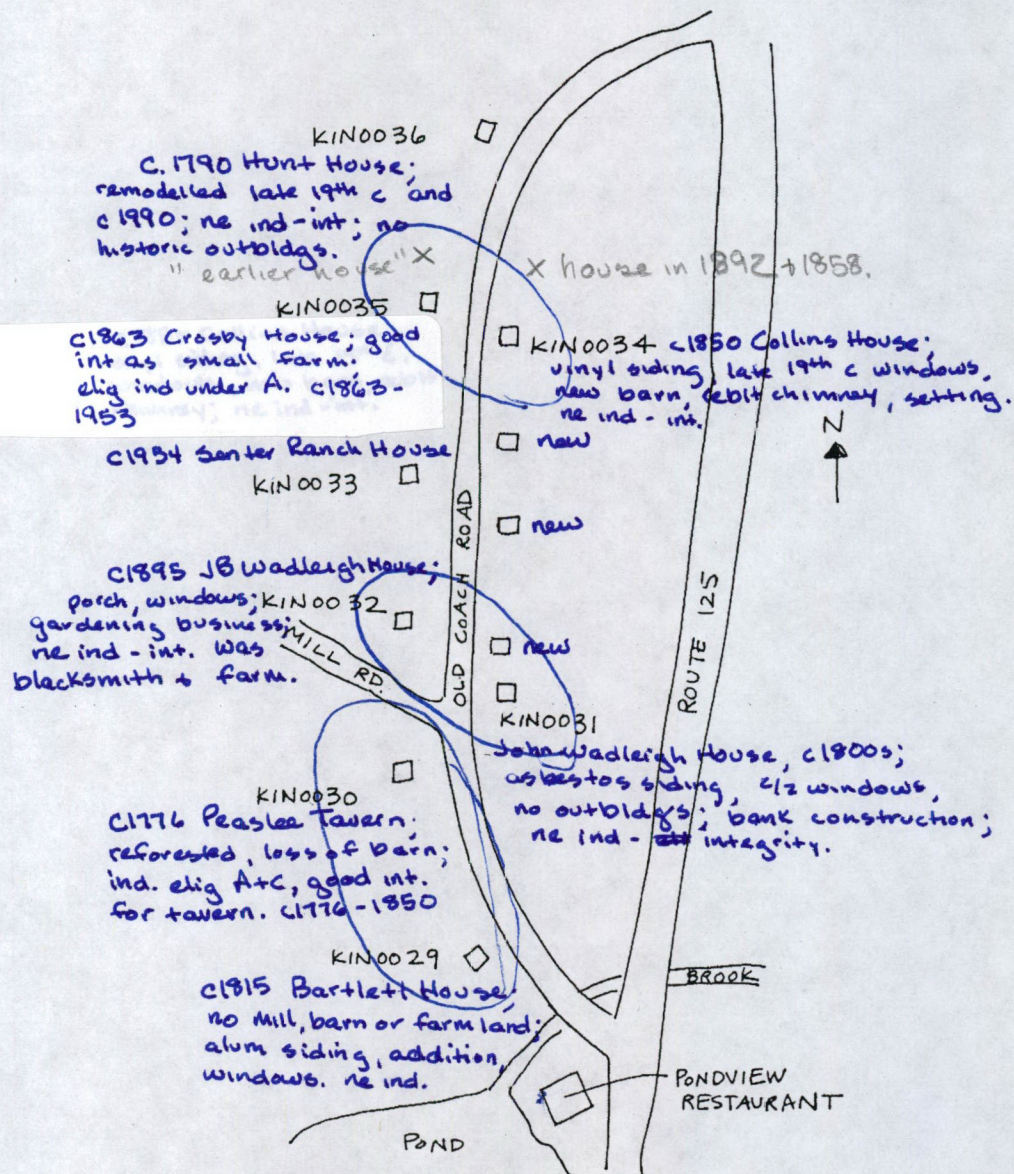 KIN0036
C. 1790 Hunt House;
remodelled late 19th c and
c 1990; ne ind - int; no
historic outbldgs.
"earlier house" X
X house in 1892 + 1858.
KIN0035
c1863 Crosby House; good
int as small farm.
elig ind under A. c1863-
1953
KIN0034 c1850 Collins House;
vinyl siding, late 19th c windows,
new barn, chimney, setting.
ne ind - int.
N
new
c1954 Senter Ranch House
KIN0033
new
OLD COACH ROAD
ROUTE 125
c1895 JB Wadleigh House;
porch, windows; KIN0032
gardening business;
ne ind - int. was
blacksmith + farm.
MILL RD.
new
KIN0031
John Wadleigh House, c1800s;
asbestos siding, 2/2 windows,
no outbldgs; bank construction;
ne ind - integrity.
KIN0030
C1776 Peaslee Tavern;
reforested, loss of barn;
ind. elig A+C, good int.
for tavern. c1776-1850
KIN0029
c1815 Bartlett House,
no mill, barn or farmland;
alum siding, addition,
windows. ne ind.
BROOK
PONDVIEW
RESTAURANT
POND